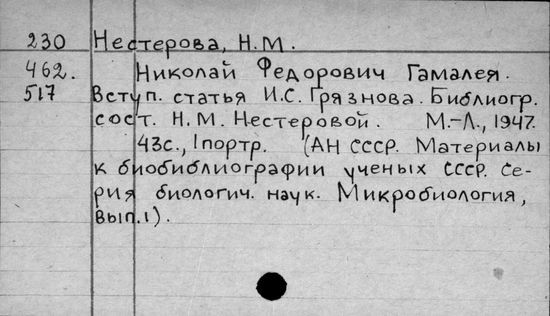 230 Нестерова, Н.М.
462. Николай Федорович Гамалея.
517 Вступ. статья И.С. Грязнова. Библиогр.
сост. Н.М. Нестеровой. М.-Л., 1947.
43с., 1портр. (АН СССР. Материалы
к биобиблиографии ученых СССР. Се-
рия биологич. наук. Микробиология,
вып.1).